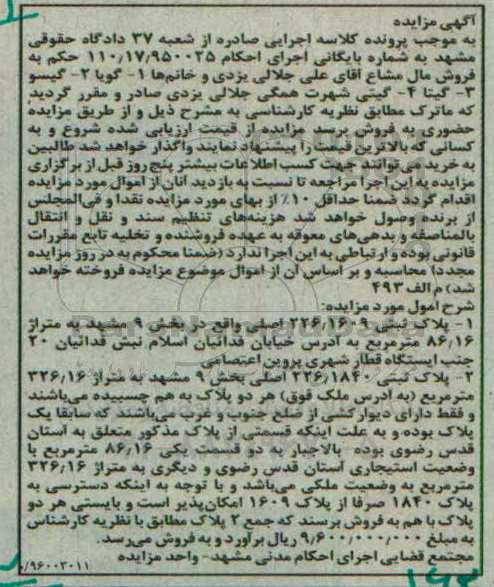 آگهی مزایده
به موجب پرونده کلاسه اجرایی صادره از شعبه ۳۷ دادگاه حقوقی
مشهد به شماره بایگانی اجرای احکام ۱۱۰,۱۷,۹۵۰۰۲۵ حکم به
فروش مال مشاع آقای علی جلالی یزدی و خانم‌ها ۱- گویا ۲- گیسو
۳- گیتا ۴- گیتی شهرت همگی جلالی یزدی صادر و مقرر گردید
که ماترک مطابق نظریه کارشناسی به مشرح ذیل و از طریق مزایده
حضوری به فروش برسد مزایده از قیمت ارزیابی شده شروع و به
کسانی که بالاترین قیمت را پیشنهاد نمایند واگذار خواهد شد طالبین
به خرید می‌توانند جهت کسب اطلاعات بیشتر پنج روز قبل از برگزاری
مزایده به این اجرا مراجعه تا نسبت به بازدید آنان از اموال مورد مزایده
اقدام گردد ضمنا حداقل ۱۰٪ از بهای مورد مزایده نقدا و فی‌المجلس
از برنده وصول خواهد شد هزینه‌های تنظیم سند و نقل و انتقال
بالمناصفه و بدهی‌های معوقه به عهده فروشنده و تخلیه تابع مقررات
قانونی بوده و ارتباطی به این اجرا ندارد (ضمنا محکوم به در روز مزایده
مجددا محاسبه و بر اساس آن از اموال موضوع مزایده فروخته خواهد
شد) م الف ۴۹۳
شرح امول مورد مزایده:
۱- پلاک ثبتی ۲۲۶,۱۶۰۹ اصلی واقع در بخش ۹ مشهد به متراژ
۸۶,۱۶ مترمربع به آدرس خیابان فدائیان اسلام نبش فدائیان ۲۰
جنب ایستگاه قطار شهری پروین اعتصامی
۲- پلاک ثبتی ۲۲۶,۱۸۴۰ اصلی بخش ۹ مشهد به متراژ ۳۲۶,۱۶
مترمربع (به آدرس ملک فوق) هر دو پلاک به هم چسبیده می‌باشند
و فقط دارای دیوار کشی از ضلع جنوب و غرب می‌باشند که سابقا یک
پلاک بوده و به علت اینکه قسمتی از پلاک مذکور متعلق به آستان
قدس رضوی بوده بالاجبار به دو قسمت یکی ۸۶,۱۶ مترمربع با
وضعیت استیجاری آستان قدس رضوی و دیگری به متراژ ۳۲۶,۱۶
مترمربع به وضعیت ملکی می‌باشد و با توجه به اینکه دسترسی به
پلاک ۱۸۴۰ صرفا از پلاک ۱۶۰۹ امکان‌پذیر است و بایستی هر دو
پلاک با هم به فروش برسند که جمع ۲ پلاک مطابق با نظریه کارشناس
به مبلغ ۹,۶۰۰,۰۰۰,۰۰۰ ریال برآورد و به فروش می‌رسد.
مجتمع قضایی اجرای احکام مدنی مشهد- واحد مزایده
/۹۶۰۰۳۰۱۱